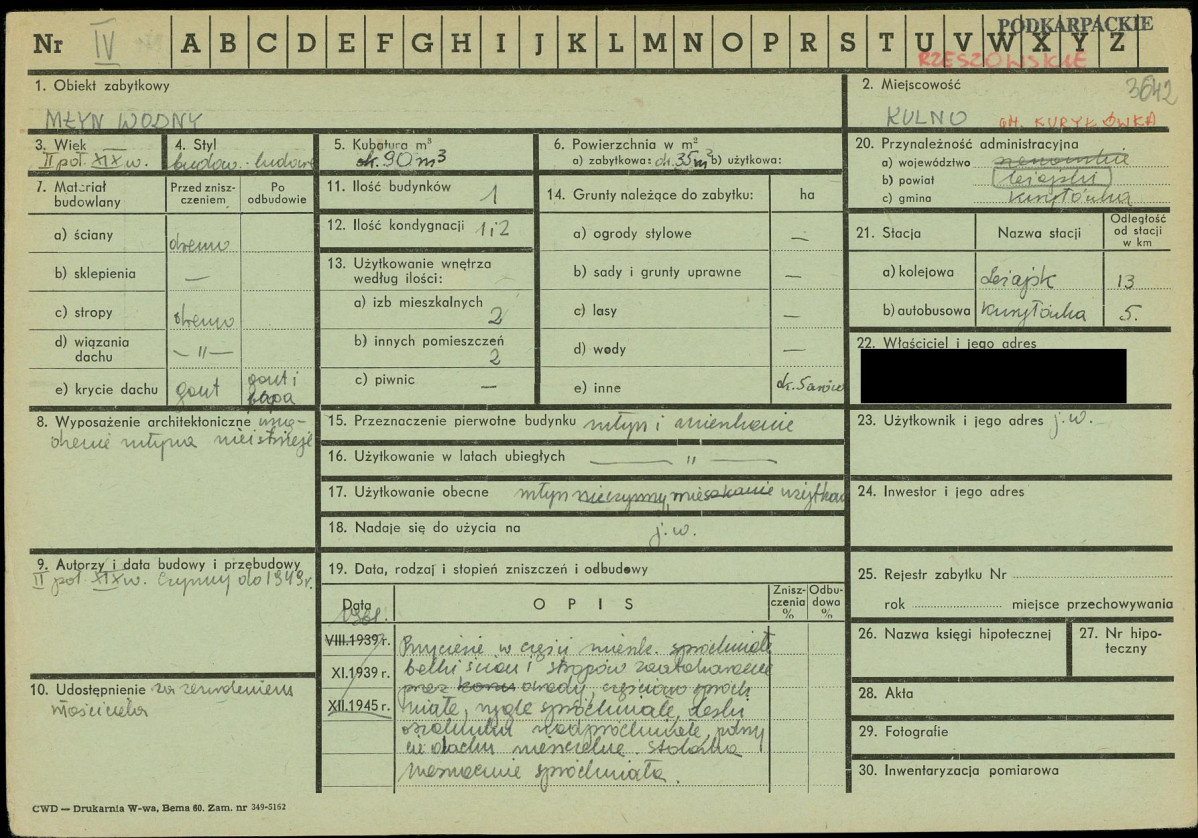 PODKARPACKIE
Nr IV A B C D E F G H I J K L M N O P R S T U V W X Y Z
RZESZOWSKIE
1. Obiekt zabytkowy
MŁYN WODNY
2. Miejscowość
3642
KULNO GM. KURYŁÓWKA
3. Wiek
II poł. XIX w.
4. Styl
budow. ludowe
5. Kubatura m³
ok. 90 m³
6. Powierzchnia w m²
a) zabytkowa: ok. 35 m² b) użytkowa:
20. Przynależność administracyjna
a) województwo rzeszowskie
b) powiat leżajski
c) gmina Kuryłówka
7. Materiał budowlany
Przed zniszczeniem
Po odbudowie
a) ściany drewno
b) sklepienia —
c) stropy drewno
d) wiązania dachu — " —
e) krycie dachu gont gont i papa
11. Ilość budynków 1
12. Ilość kondygnacji 1 i 2
13. Użytkowanie wnętrza według ilości:
a) izb mieszkalnych 2
b) innych pomieszczeń 2
c) piwnic —
14. Grunty należące do zabytku: ha
a) ogrody stylowe —
b) sady i grunty uprawne —
c) lasy —
d) wody —
e) inne ok. 5 arów
21. Stacja
Nazwa stacji
Odległość od stacji w km
a) kolejowa Leżajsk 13
b) autobusowa Kuryłówka 5.
22. Właściciel i jego adres
8. Wyposażenie architektoniczne urzą-
dzenie młyna nie istnieje
15. Przeznaczenie pierwotne budynku młyn i mieszkanie
16. Użytkowanie w latach ubiegłych — " —
17. Użytkowanie obecne młyn nieczynny, mieszkanie użytkow
18. Nadaje się do użycia na j.w.
23. Użytkownik i jego adres j.w.
24. Inwestor i jego adres
9. Autorzy i data budowy i przebudowy
II poł. XIX w. Czynny do 1949 r.
19. Data, rodzaj i stopień zniszczeń i odbudowy
Data
OPIS
Zniszczenia %
Odbudowa %
1961.
VIII.1939 r.
XI.1939 r.
XII.1945 r.
Przyciesie w części mieszk. spróchniałe
belki ścian i stropów zaatakowane
przez owady, częściowo spróch
niałe, rygle spróchniałe, deski
oszalunku nadpróchniałe, pokry
cie dachu nieszczelne. Stolarka
nieznacznie spróchniała.
10. Udostępnienie za zezwoleniem
właściciela
25. Rejestr zabytku Nr
rok miejsce przechowywania
26. Nazwa księgi hipotecznej
27. Nr hipoteczny
28. Akta
29. Fotografie
30. Inwentaryzacja pomiarowa
CWD — Drukarnia W-wa, Bema 60. Zam. nr 349-5162